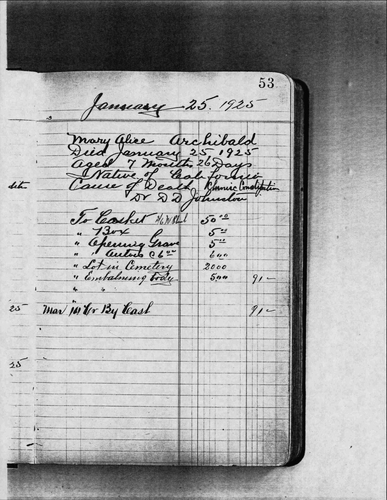 53
January 25. 1925
Mary Alice Archibald
Died January 25 1925
Aged 7 Months 26 Days
Native of California
Cause of Death
Dr D D Johnston
To Casket 50 00
" Box 5 00
" Opening Grave 5 00
" Autos 6 00
" Lot in Cemetery 20 00
" Embalming Body 5 00 91 –
" "
25 Mar By Cash 91 –
25